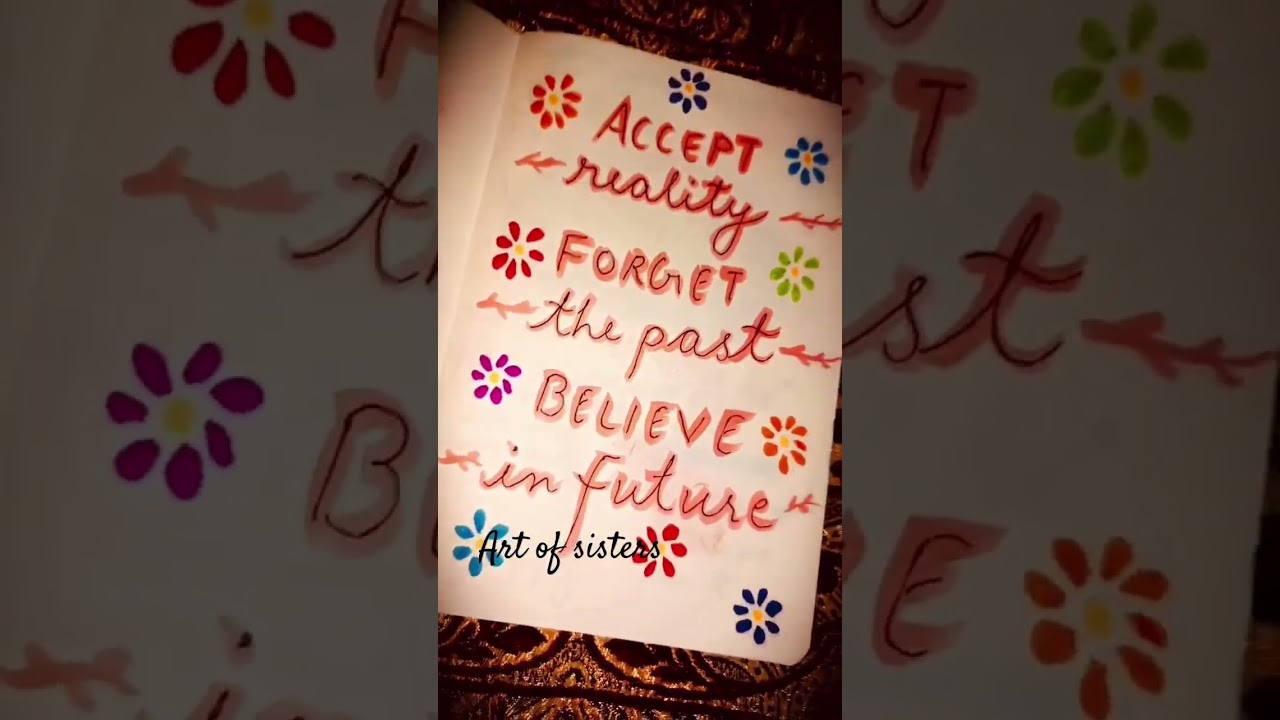 ACCEPT
reality
FORGET
the past
BELIEVE
in future
Art of sisters